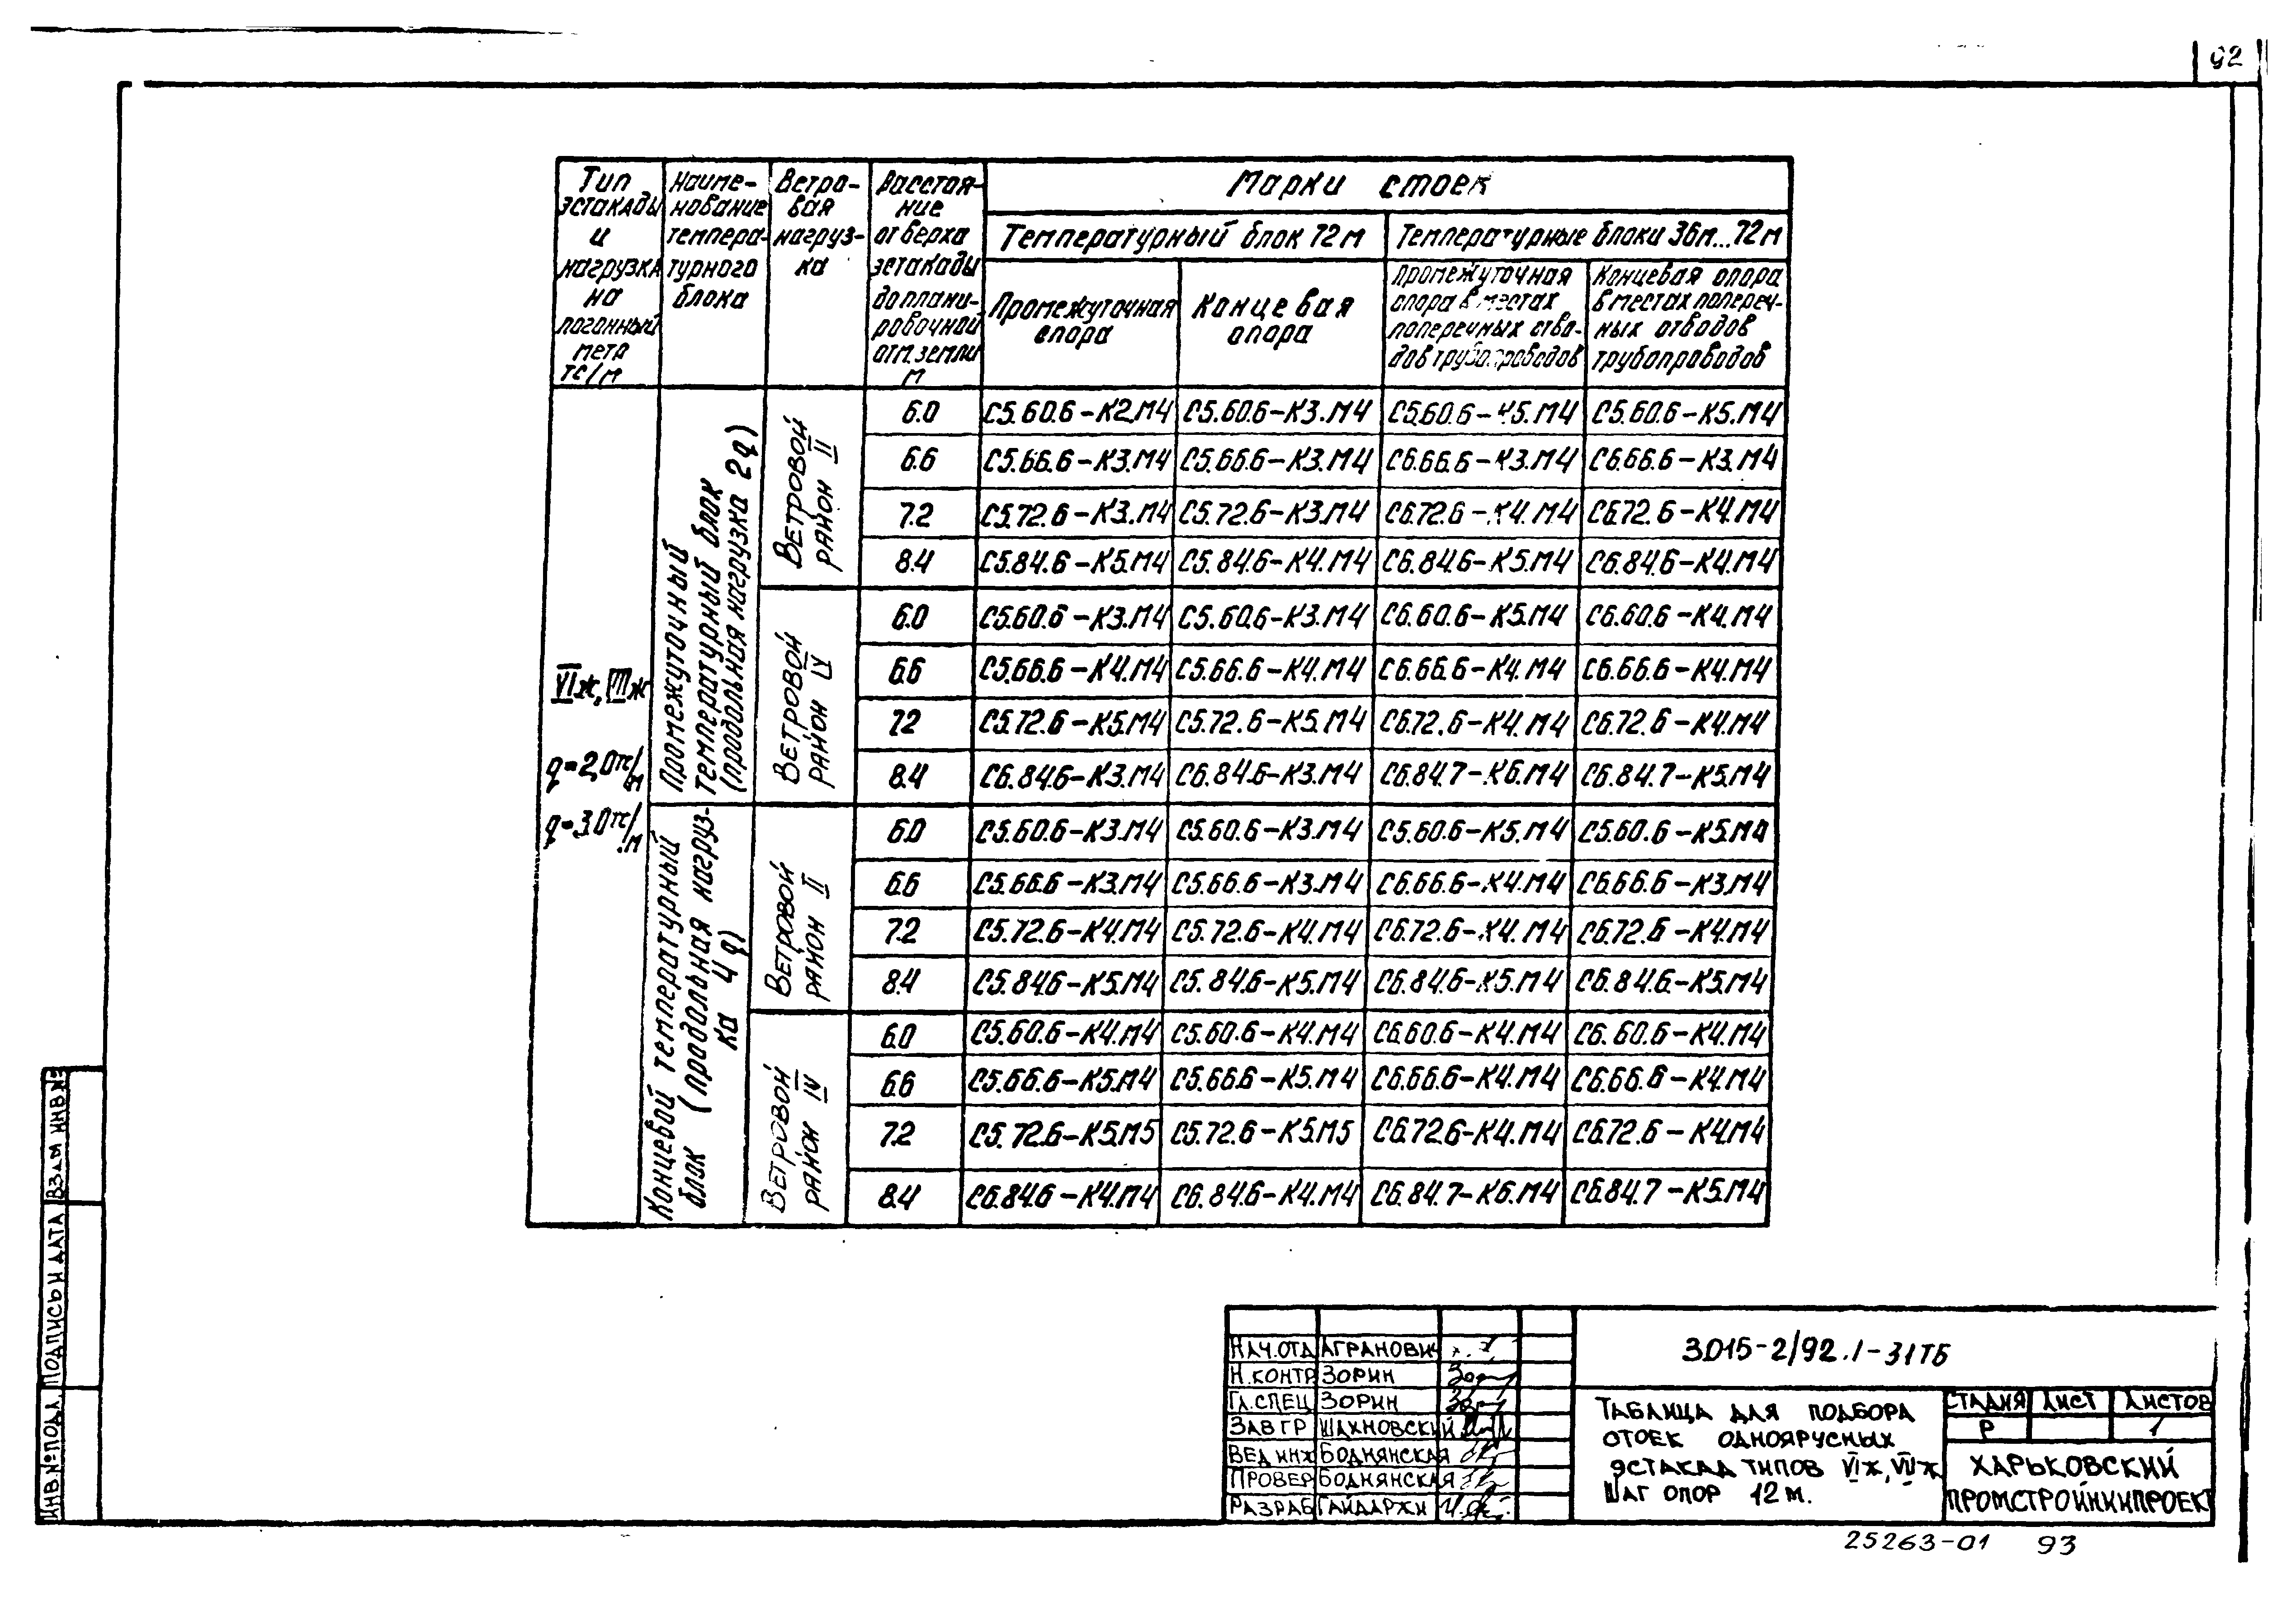 92
Тип эстакады и нагрузка на погонный метр тс/м
Наименование температурного блока
Ветровая нагрузка
Расстояние от верха эстакады до планировочной отм. земли м
Марки стоек
Температурный блок 72м
Температурные блоки 36м...72м
Промежуточная опора
Концевая опора
Промежуточная опора в местах поперечных отводов трубопроводов
Концевая опора в местах поперечных отводов трубопроводов
q=2,0тс/м
q=3.0тс/м
Промежуточный температурный блок (продольная нагрузка 2q)
Ветровой район II
6.0 С5.60.6-К2.М4 С5.60.6-К3.М4 С5.60.6-К5.М4 С5.60.6-К5.М4
6.6 С5.66.6-К3.М4 С5.66.6-К3.М4 С6.66.6-К3.М4 С6.66.6-К3.М4
7.2 С5.72.6-К3.М4 С5.72.6-К3.М4 С6.72.6-К4.М4 С6.72.6-К4.М4
8.4 С5.84.6-К5.М4 С5.84.6-К4.М4 С6.84.6-К5.М4 С6.84.6-К4.М4
Ветровой район IV
6.0 С5.60.6-К3.М4 С5.60.6-К3.М4 С6.60.6-К5.М4 С6.60.6-К4.М4
6.6 С5.66.6-К4.М4 С5.66.6-К4.М4 С6.66.6-К4.М4 С6.66.6-К4.М4
7.2 С5.72.6-К5.М4 С5.72.6-К5.М4 С6.72.6-К4.М4 С6.72.6-К4.М4
8.4 С6.84.6-К3.М4 С6.84.6-К3.М4 С6.84.7-К6.М4 С6.84.7-К5.М4
Концевой температурный блок (продольная нагрузка 4q)
Ветровой район II
6.0 С5.60.6-К3.М4 С5.60.6-К3.М4 С5.60.6-К5.М4 С5.60.6-К5.М4
6.6 С5.66.6-К3.М4 С5.66.6-К3.М4 С6.66.6-К4.М4 С6.66.6-К3.М4
7.2 С5.72.6-К4.М4 С5.72.6-К4.М4 С6.72.6-К4.М4 С6.72.6-К4.М4
8.4 С5.84.6-К5.М4 С5.84.6-К5.М4 С6.84.6-К5.М4 С6.84.6-К5.М4
Ветровой район IV
6.0 С5.60.6-К4.М4 С5.60.6-К4.М4 С6.60.6-К4.М4 С6.60.6-К4.М4
6.6 С5.66.6-К5.М4 С5.66.6-К5.М4 С6.66.6-К4.М4 С6.66.6-К4.М4
7.2 С5.72.6-К5.М5 С5.72.6-К5.М5 С6.72.6-К4.М4 С6.72.6-К4.М4
8.4 С6.84.6-К4.М4 С6.84.6-К4.М4 С6.84.7-К6.М4 С6.84.7-К5.М4
Взам инв№
Подпись и дата
Инв.№подл.
Нач.отд Агранович
Н.контр Зорин
Гл.спец Зорин
Зав гр Шахновский
Вед инж Боднянская
Провер Боднянская
Разраб Гайдаржи
3.015-2/92.1-31ТБ
Таблица для подбора
стоек одноярусных
эстакад типов VIж, VIIж
Шаг опор 12м.
Стадия Лист Листов
Р 1
Харьковский
Промстройниипроект
25263-01 93